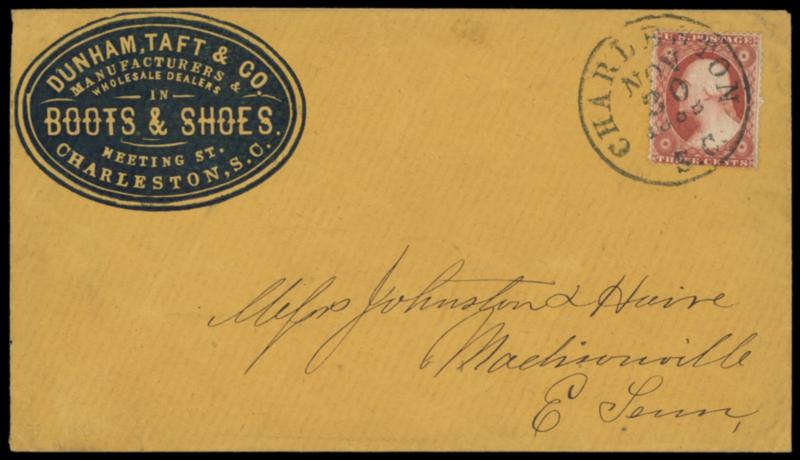 DUNHAM, TAFT & CO.
MANUFACTURERS &
WHOLESALE DEALERS
IN
BOOTS & SHOES.
MEETING ST.
CHARLESTON, S.C.
CHARLESTON
NOV
20
S.C.
U.S. POSTAGE
THREE CENTS
Messrs Johnston & Haire
Madisonville
E Tenn,